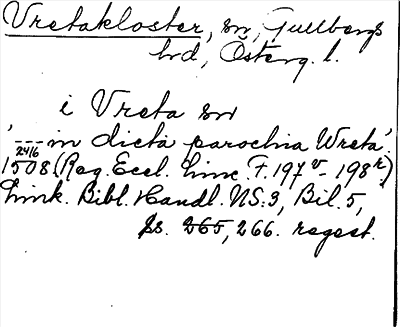 Vretakloster, sn, Gullbergs
hd, Österg. l.
i Vreta sn
'--- in dicta parochia Wreta'.
24/6
1508. (Reg. Eccl. Linc. F. 197v - 198r,)
Link. Bibl. Handl. NS:3, Bil. 5,
ps. 265, 266. regest.